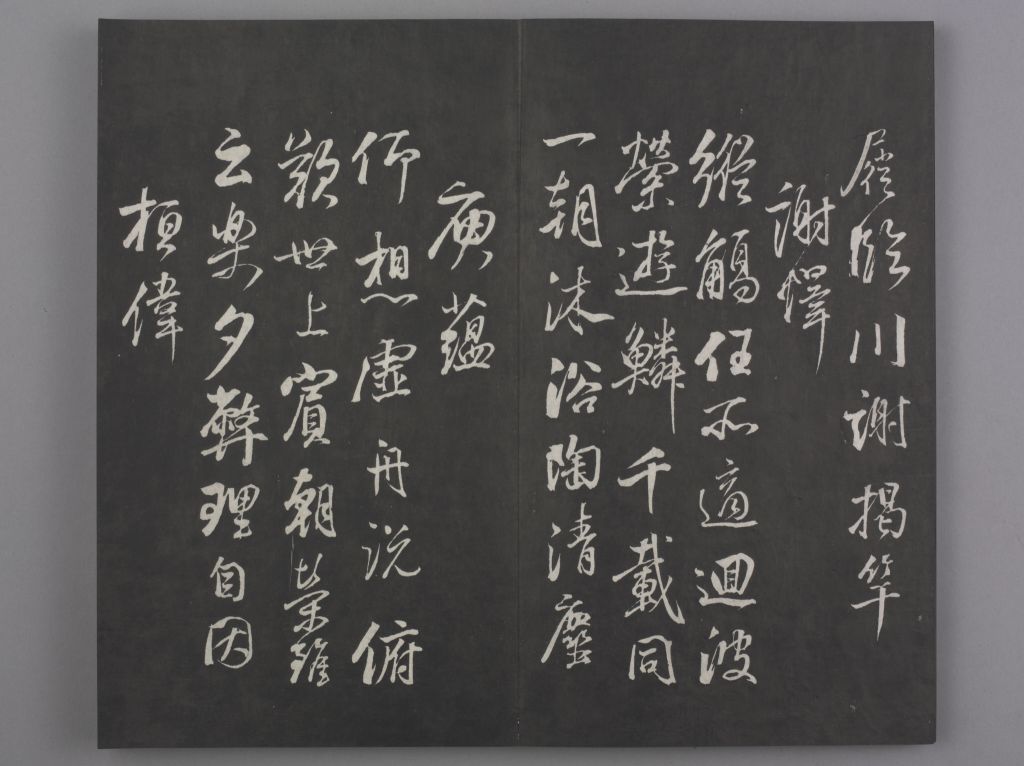 屣臨川謝揭竿
謝繹
縱觴任所適迴波
縈遊鱗千載同
一朝沐浴陶清塵
庾蘊
仰想虛舟說俯
歎世上賓朝榮雖
云樂夕弊理自因
桓偉